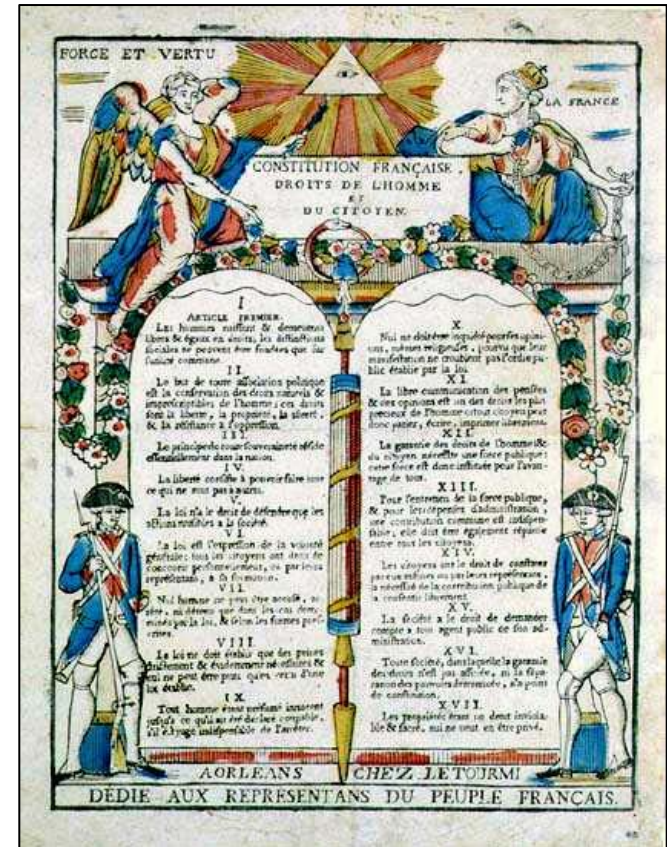 FORCE ET VERTU
LA FRANCE
CONSTITUTION FRANÇAISE.
DROITS DE LHOMME
ET
DU CITOYEN.
I
ARTICLE PREMIER.
Les hommes naissent & demeurent
libres & égaux en droits, les distinctions
sociales ne peuvent être fondées que sur
l'utilité commune.
II.
Le but de toute association politique
est la conservation des droits naturels &
imprescriptibles de l'homme; ces droits
sont la liberté, la propriété, la sûreté,
& la résistance à l'oppression.
III.
Le principe de toute souveraineté réside
essentiellement dans la nation.
IV.
La liberté consiste à pouvoir faire tout
ce qui ne nuit pas à autrui.
V.
La loi n'a le droit de défendre que les
actions nuisibles à la société.
VI.
La loi est l'expression de la volonté
générale; tous les citoyens ont droit de
concourir personnellement, ou par leurs
représentans, à sa formation.
VII.
Nul homme ne peut être accusé,
ni détenu que dans les cas
par la loi, & selon les formes
VIII.
La loi ne doit établir que des peines
strictement & évidemment nécessaires &
nul ne peut être puni qu'en vertu d'une
loi établie.
IX.
Tout homme étant présumé innocent
jusqu'à ce qu'il ait été déclaré coupable,
s'il est jugé indispensable de l'arrêter.
X
Nul ne doit être inquiété pour ses opini-
ons, mêmes religieuses, pourvu que leur
manifestation ne troublent pas l'ordre pu-
blic établie par la loi.
XI.
La libre communication des pensées
& des opinions est un des droits les plus
precieux de l'homme: tout citoyen peut
donc parler, écrire, imprimer librement.
XII.
La garantie des droits de l'homme &
du citoyen nécessite une force publique:
cette force est donc instituée pour l'avan-
tage de tous.
XIII.
Pour l'entretien de la force publique,
& pour les dépenses d'administration,
une contribution commune est indispen-
sable; elle doit être également répartie
entre tous les citoyens.
XIV.
Les citoyens ont le droit de constater
par eux mêmes ou par leurs représentans,
la nécessité de la contribution publique de
la consentir librement.
XV.
La société a le droit de demander
compte à tout agent public de son ad-
ministration.
XVI.
Toute société, dans laquelle la garantie
des droits n'est pas assurée, ni la sépa-
ration des pouvoirs déterminée, n'a point
de constitution.
XVII.
Les propriétés étant un droit inviola-
ble & sacré, nul ne peut en être privé.
A ORLEANS CHEZ LETOURMI
DÉDIÉ AUX REPRESENTANS DU PEUPLE FRANÇAIS.